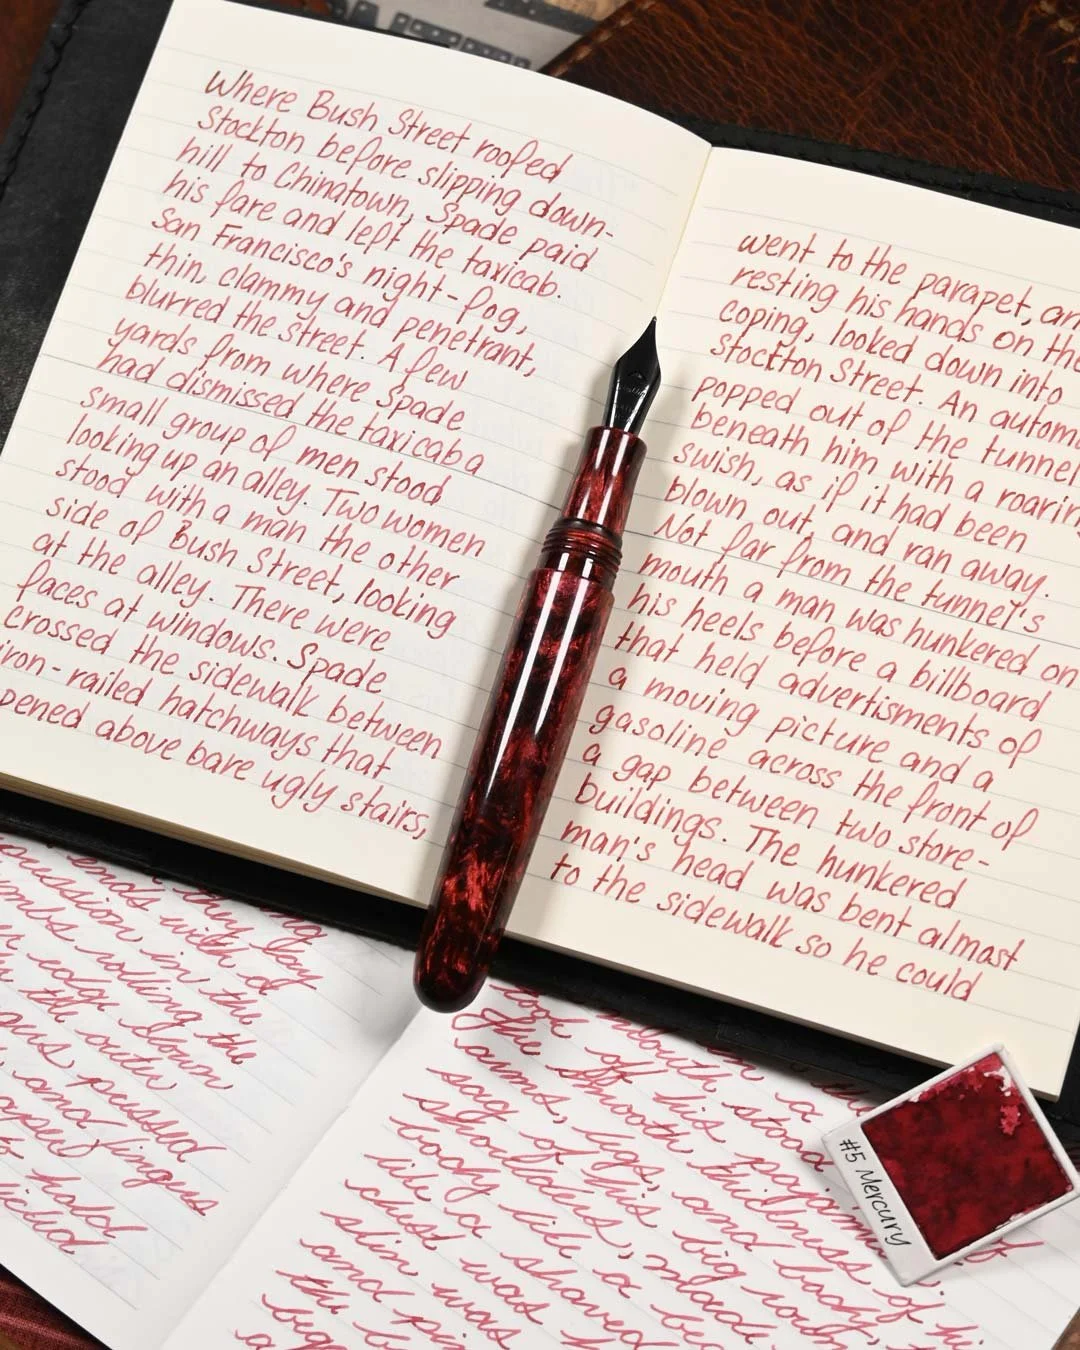 Where Bush Street roofed
Stockton before slipping down-
hill to Chinatown, Spade paid
his fare and left the taxicab.
San Francisco's night-fog,
thin, clammy and penetrant,
blurred the street. A few
yards from where Spade
had dismissed the taxicab a
small group of men stood
looking up an alley. Two women
stood with a man the other
side of Bush Street, looking
at the alley. There were
faces at windows. Spade
crossed the sidewalk between
iron-railed hatchways that
pened above bare ugly stairs,
went to the parapet, an
resting his hands on the
coping, looked down into
Stockton Street. An autom
popped out of the tunnel
beneath him with a roarin
swish, as if it had been
blown out, and ran away.
Not far from the tunnel's
mouth a man was hunkered on
his heels before a billboard
that held advertisments of
a moving picture and a
gasoline across the front of
a gap between two store-
buildings. The hunkered
man's head was bent almost
to the sidewalk so he could
ends with
in the
rolling the
edge down
the outer
pursed
and finges
hold
mouth
look of his stood a
the smooth thickness of
arms, legs, and body of hi
sag of his big round
shoulders, made
body like a be
like a shaved
chest was
slim was
and pin
the b
#5 Mercury